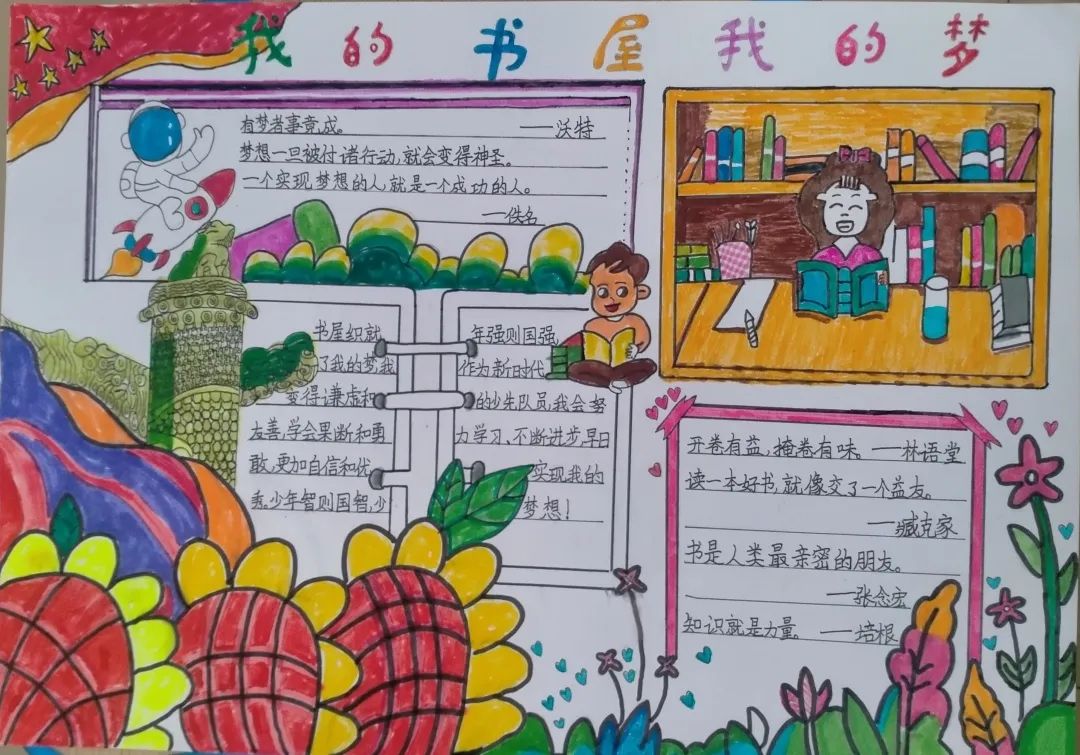 我的书屋我的梦
有梦者事竟成。 ——沃特
梦想一旦被付诸行动,就会变得神圣。
一个实现梦想的人,就是一个成功的人。
——佚名
书屋织就
了我的梦,我
变得谦虚和
友善,学会果断和勇
敢,更加自信和优
秀。少年智则国智,少
年强则国强,
作为新时代
的少先队员,我会努
力学习、不断进步,早日
实现我的
梦想!
开卷有益,掩卷有味。——林语堂
读一本好书,就像交了一个益友。
——臧克家
书是人类最亲密的朋友。
——张念宏
知识就是力量。——培根